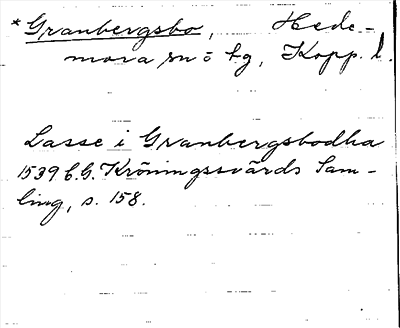 *Granbergsbo, Hede-
mora sn o tg, Kopp. l.
Lasse i Granbergsbodha
1539 C.G. Kröningssvärds Sam-
ling, s. 158.